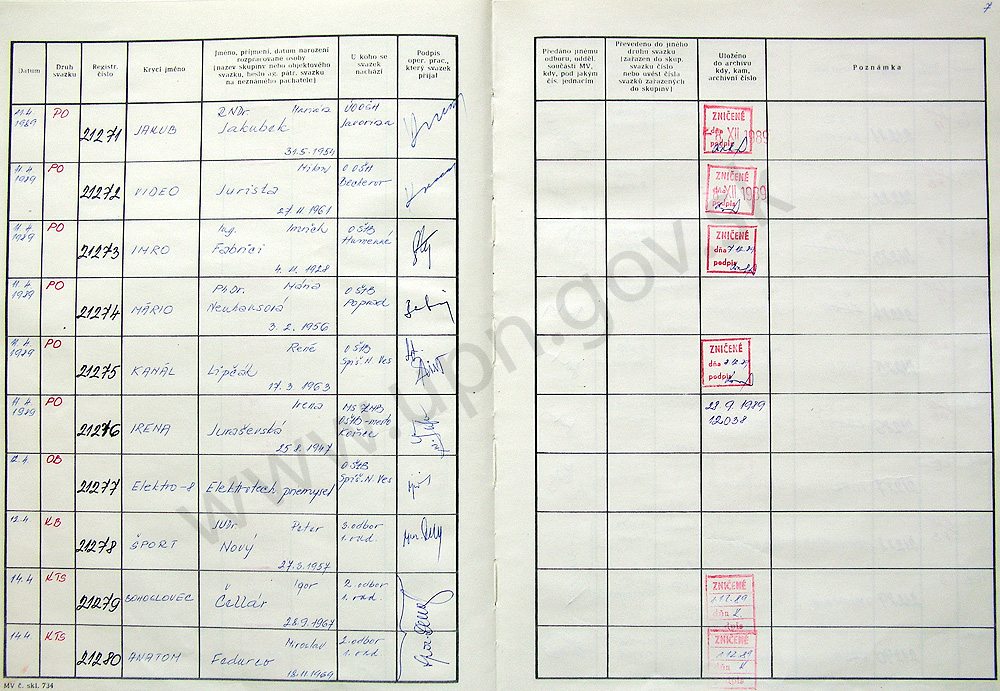 7
Datum
Druh
svazku
Registr.
číslo
Krycí jméno
Jméno, příjmení, datum narození
rozpracované osoby
(název skupiny nebo objektového
svazku, heslo ag. pátr. svazku
na neznámého pachatele)
U koho se
svazek
nachází
Podpis
oper. prac.,
který svazek
přijal
Předáno jinému
odboru, udděl.
součásti MV,
kdy, pod jakým
čís. jednacím
Převedeno do jiného
druhu svazku
(zařazen do skup.
svazku číslo
nebo uvést čísla
svazků zařazených
do skupiny)
Uloženo
do archivu
kdy, kam,
archivní číslo
Poznámka
11.4
1989
PO
21271
JAKUB
RNDr.
Jakubek
31.5.1954
ZNIČENÉ
dňa 8 XII 1989
podpis
11.4
1989
PO
21272
VIDEO
Jurista
27.11.1961
O ŠtB
ZNIČENÉ
dňa XII 1989
podpis
11.4
1989
PO
21273
IMRO
Ing. Imrich
Fabrici
4.11.1928
O ŠtB
Humenné
ZNIČENÉ
dňa 7.12.89
podpis
11.4
1989
PO
21274
MÁRIO
PhDr. Mária
3.2.1956
O ŠtB
Poprad
11.4
1989
PO
21275
KANÁL
René
Lipčák
17.3.1963
O ŠtB
Spiš. N. Ves
ZNIČENÉ
dňa
podpis
11.4
1989
PO
21276
IRENA
Irena
Jurašerská
25.8.1947
Košice
28.9.1989
12038
12.4
OB
21277
Elektro-8
Elektrotech. priemysel
O ŠtB
Spiš. N. Ves
13.4
KB
21278
ŠPORT
JUDr. Peter
Nový
27.5.1957
3. odbor
1. odd.
14.4
KTS
21279
BOHOSLOVEC
Igor
Čellár
28.9.1967
2. odbor
1. odd.
ZNIČENÉ
1.12.89
14.4
KTS
21280
ANATOM
Miroslav
Fedurco
18.11.1969
2. odbor
1. odd.
ZNIČENÉ
1.12.89
MV č. skl. 734
www.upn.gov.sk